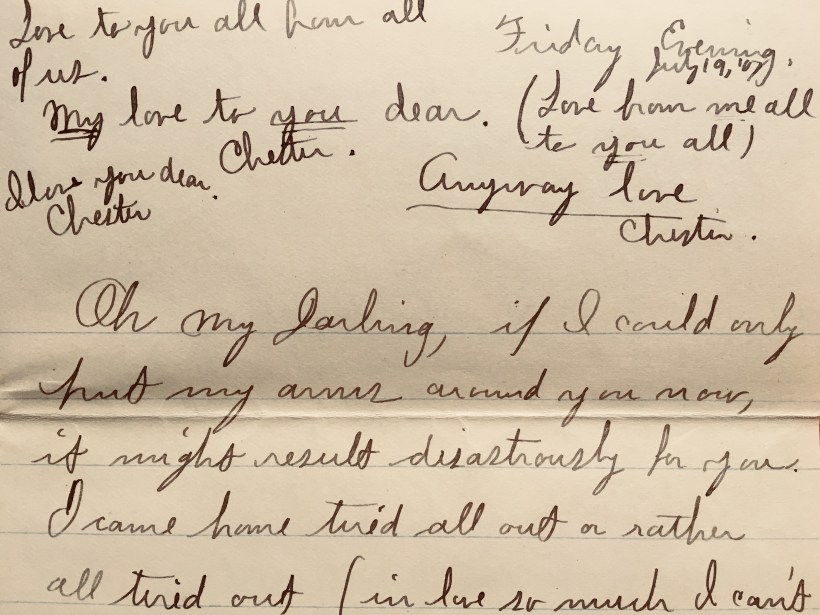 Love to you all from all
of us.
My love to you dear.
Chester.
I love you dear.
Chester
Friday Evening.
July 19, '07.
(Love from me all
to you all)
Anyway love
Chester.
Oh my Darling, if I could only
put my arms around you now,
it might result disastrously for you.
I came home tired all out or rather
all tired out (in love so much I can't